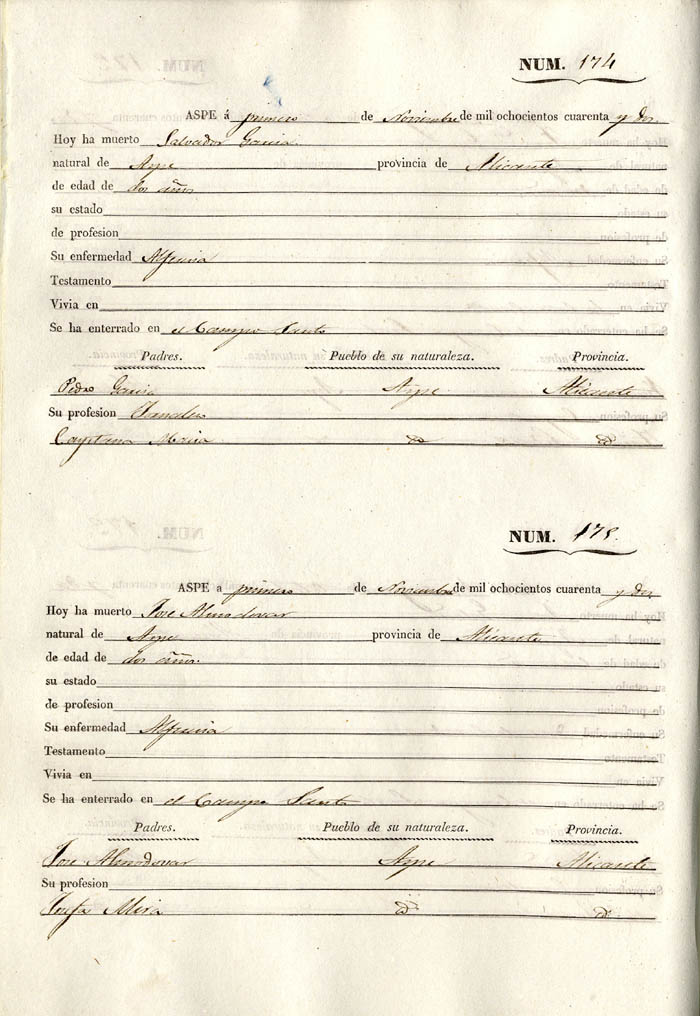 NUM. 174
ASPE á primero de Noviembre de mil ochocientos cuarenta y dos
Hoy ha muerto Salvador Garcia
natural de Aspe provincia de Alicante
de edad de dos años
su estado
de profesion
Su enfermedad Alferecia
Testamento
Vivia en
Se ha enterrado en el Campo Santo
Padres. Pueblo de su naturaleza. Provincia.
Pedro Garcia Aspe Alicante
Su profesion
Cayetana
NUM. 175.
ASPE a primero de Noviembre de mil ochocientos cuarenta y dos
Hoy ha muerto Jose Almodovar
natural de Aspe provincia de Alicante
de edad de dos años.
su estado
de profesion
Su enfermedad Alferecia
Testamento
Vivia en
Se ha enterrado en el Campo Santo
Padres. Pueblo de su naturaleza. Provincia.
Jose Almodovar Aspe Alicante
Su profesion
Josefa Mira